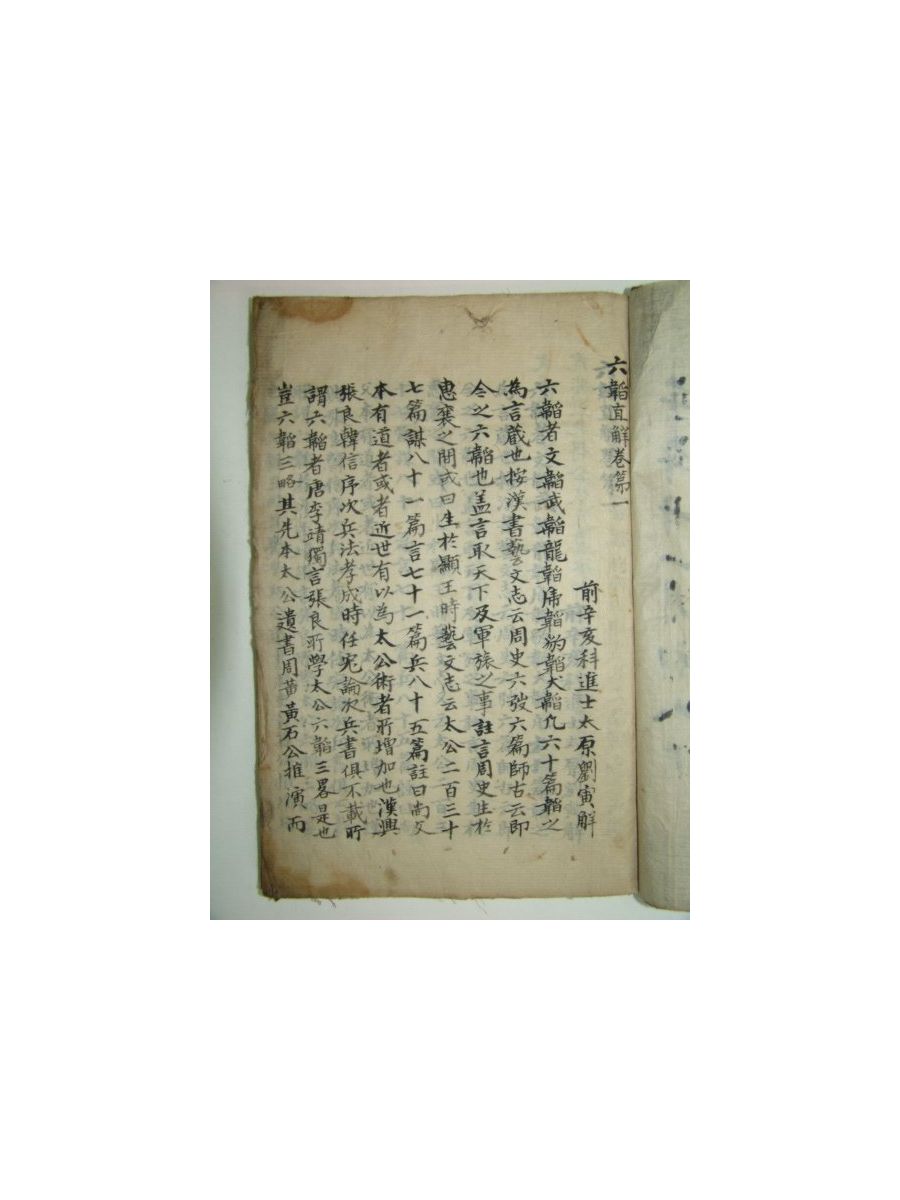 六韜直解卷第一
前辛亥科進士太原劉寅解
六韜者文韜武韜龍韜虎韜豹韜犬韜凡六十篇韜之
為言藏也按漢書藝文志云周史六弢六篇師古云即
今之六韜也盖言取天下及軍旅之事註言周史生於
惠襄之間或曰生於顯王時藝文志云太公二百三十
七篇謀八十一篇言七十一篇兵八十五篇註曰尚父
本有道者或者近世有以為太公術者所增加也漢興
張良韓信序次兵法孝成時任宏論次兵書俱不載所
謂六韜者唐李靖獨言張良所學太公六韜三畧是也
豈六韜三略其先本太公遺書周黃石公推演而